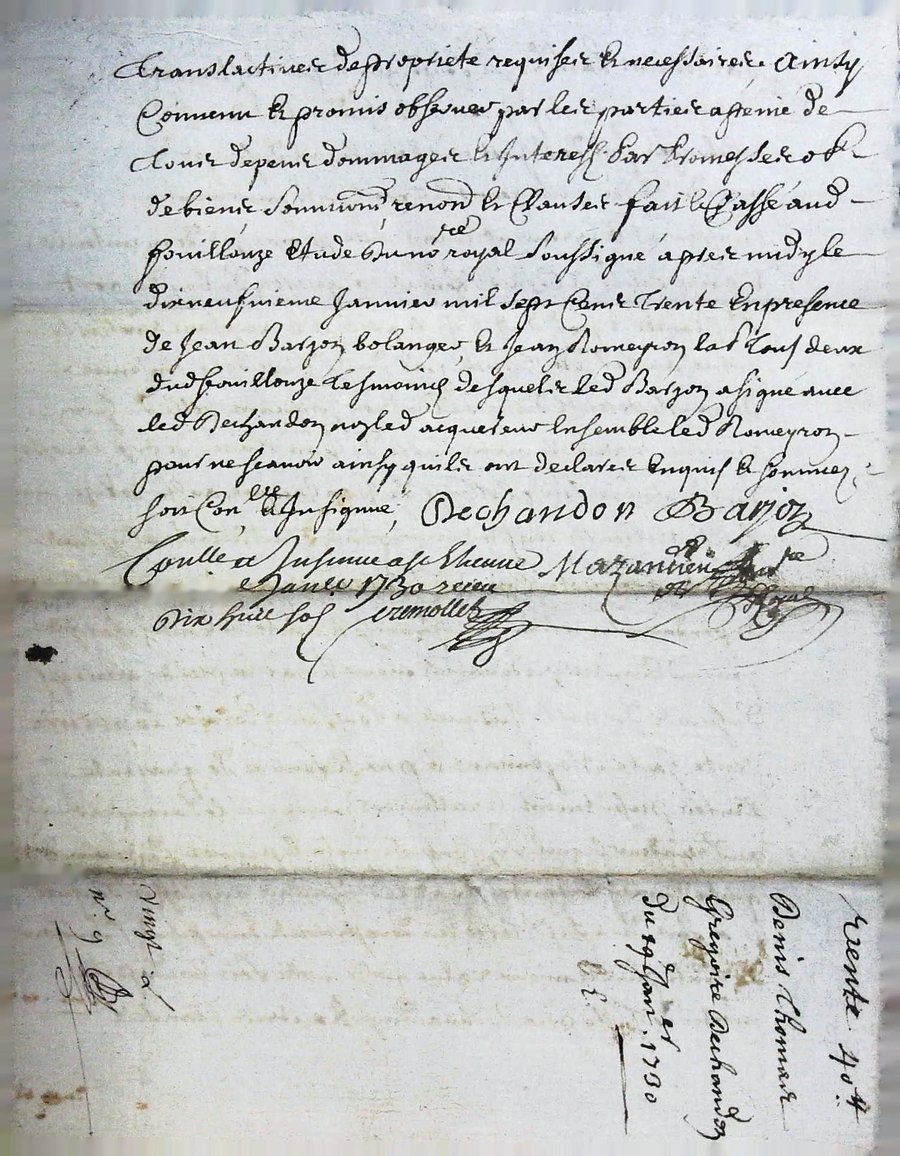 Translactives de propriete requises & necessaires. Ainsy
Convenu & promis observer par les parties a peine de
Tous depens dommages & Interest par promesses ob
de biens soumions renond & Clauses fait & Passé aud
fouillouze Etude du no.re royal soussigné apres midy le
dixneufvieme Janvier mil sept Cens Trente En presence
de Jean Barjon bolanger & Jean Romeyron lab.r Tous deux
dud fouillouze Tesmoins desquels Led Barjon a signé avec
led Dechandon non led acquereur Ensemble led Romeyron
pour ne scavoir ainsy quils ont declarer Enquis & sommez
soit Con.llé & Insignué Dechandon Barjon
Conllé et Insinué a St Etienne Mazandieu
Janv 1730 receu
dix huit sols
Vente 40 ₶
Denis Thomas
Gregoire Dechandon
du 19 Jan.er 1730
vingt
n.° 9